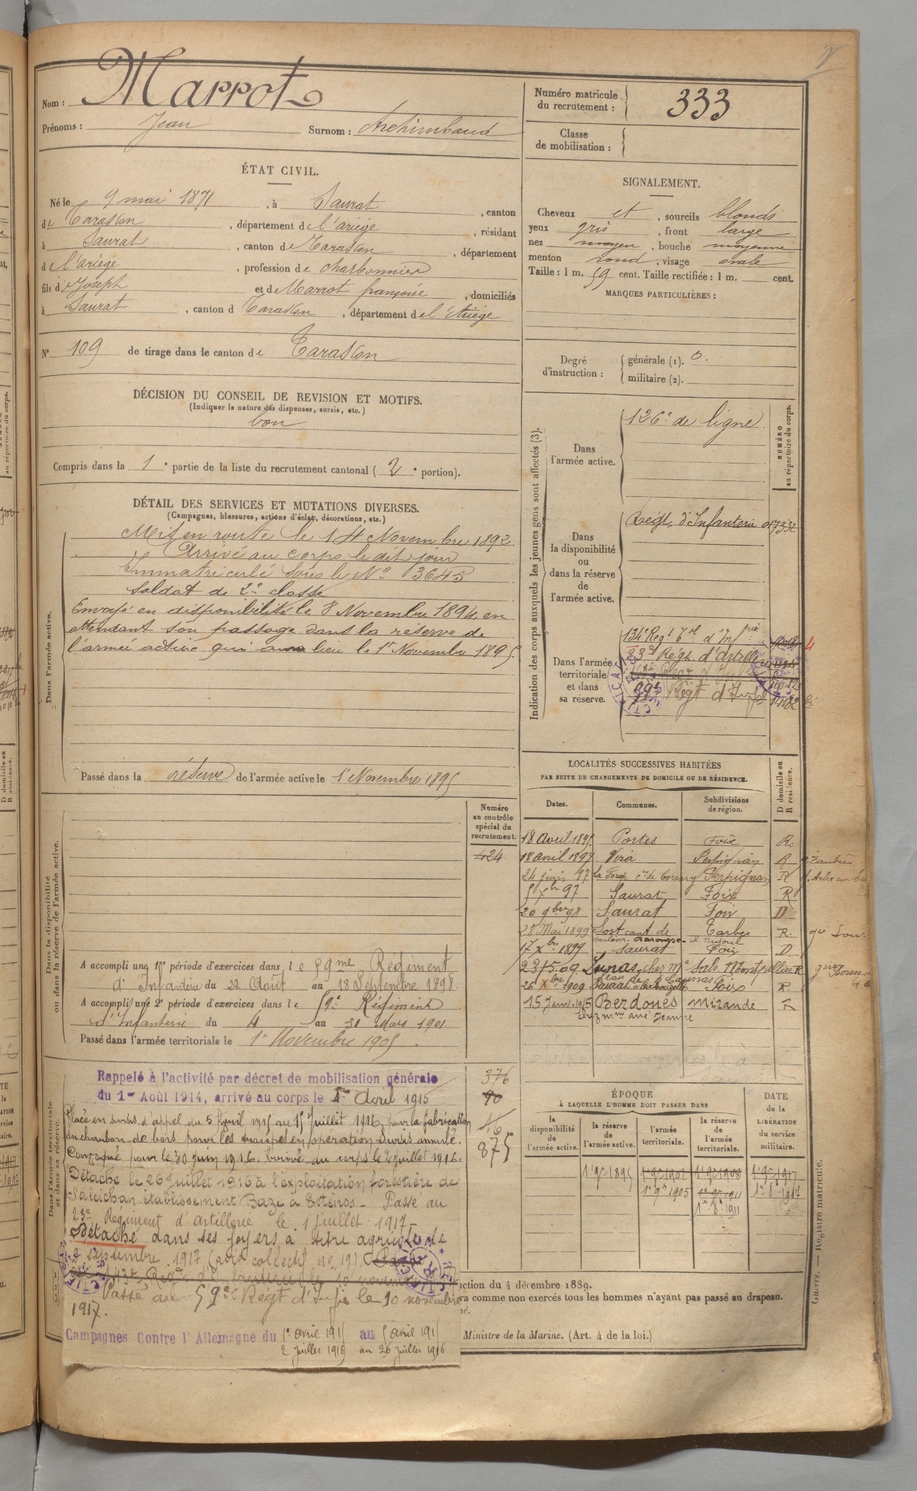 Nom : Marrot
Prénoms : Jean Surnom : Archimbaud
ÉTAT CIVIL.
Né le 9 mai 1871, à Saurat, canton
de Tarascon, département de l'ariège, résidant
à Saurat, canton de Tarascon, département
de l'ariège, profession de charbonnier
fils de Joseph et de Marrot françoise, domiciliés
à Saurat, canton de Tarascon, département de l'Ariège
N° 109 de tirage dans le canton de Tarascon
DÉCISION DU CONSEIL DE REVISION ET MOTIFS.
(Indiquer la nature des dispenses, sursis, etc.)
bon
Compris dans la 1e partie de la liste du recrutement cantonal (2e portion).
DÉTAIL DES SERVICES ET MUTATIONS DIVERSES.
(Campagnes, blessures, actions d'éclat, décorations, etc.)
Dans l'armée active.
Mis en route le 14 Novembre 1892
Arrivé au corps le dit jour
Immatriculé sous le N° 3645
Soldat de 2e classe
Envoyé en disponibilité le 8 Novembre 1894 en
attendant son passage dans la réserve de
l'armée active qui a eu lieu le 1er Novembre 1895
Passé dans la réserve de l'armée active le 1er Novembre 1895
Numéro
au contrôle
spécial du
recrutement.
424
Dans la disponibilité
ou dans la réserve de l'armée active.
A accompli une 1re période d'exercices dans le 59me Régiment
d'Infanterie du 22 Août au 18 Septembre 1898
A accompli une 2e période d'exercices dans le 59e Régiment
d'Infanterie du 4 au 31 Mars 1901
Passé dans l'armée territoriale le 1er Novembre 1905.
Rappelé à l'activité par décret de mobilisation générale
du 1er Août 1914, arrivé au corps le 1er Avril 1915
Placé en sursis d'appel du 5 Avril 1915 au 15 Juillet 1916 pour la fabrication
du charbon de bois pour les troupes en opération. Sursis annulé.
Convoqué pour le 30 Juin 1916. Arrivé au corps le 2 juillet 1916.
Détaché le 26 juillet 1916 à l'exploitation forestière de
établissement Baze à Passé au
23e Régiment d'artillerie le 1 juillet 1917
Détaché dans ses foyers à titre agricole le
2 septembre 1917
Passé au 59e Régt d'Infie le 10 novembre
1917.
Campagnes Contre l'Allemagne du 1er avril 1915 au 5 avril 1915
2 juillet 1916 au 26 juillet 1916
376
90
16
875
Numéro matricule
du recrutement : 333
Classe
de mobilisation :
SIGNALEMENT.
Cheveux et, sourcils blonds
yeux gris, front large
nez moyen, bouche moyenne
menton rond, visage ovale
Taille : 1 m. 59 cent. Taille rectifiée : 1 m. cent.
MARQUES PARTICULIÈRES :
Degré
d'instruction :
générale (1). 0.
militaire (2).
Indication des corps auxquels les jeunes gens sont affectés (3).
NUMÉRO
au répertoire du corps.
Dans
l'armée active.
126e de ligne
Dans
la disponibilité
ou
dans la réserve
de
l'armée active.
Régt d'Infanterie
Dans l'armée
territoriale
et dans
sa réserve.
134e Regt Tal d'Infrie
23e Régt. d'Artillerie
59e Régt d'Infie
LOCALITÉS SUCCESSIVES HABITÉES
PAR SUITE DE CHANGEMENTS DE DOMICILE OU DE RÉSIDENCE.
Dates. Communes. Subdivisions de région. D domicile ou R résidence.
18 Avril 1895 Portes Foix R.
18 avril 1897 Véra Perpignan R
24 juin 97 Perpignan R
5 Xbre 97 Saurat Foix R
20 9bre 98 Saurat Foix D
28 Mai 1899 Sost cant de Tarbes R.
Mauléon Barousse
17 Xbre 1899 Saurat Foix D
23-5-09 Lunas chez Mr Montpellier R
26 Xbre 1909 Foix R
15 Janv 1915 Berdoues Mirande R
ÉPOQUE
À LAQUELLE L'HOMME DOIT PASSER DANS
DATE
de la
LIBÉRATION
du service
militaire.
la disponibilité de l'armée active. la réserve de l'armée active. l'armée territoriale. la réserve de l'armée territoriale.
1er 9bre 1895 1er 9bre 1908 1er 9bre 1917
1er 9bre 1905 1er 8bre 1911
ction du 4 décembre 1889.
ra comme non exercés tous les hommes n'ayant pas passé au drapeau.
Ministre de la Marine. (Art. 4 de la loi.)
Guerre. — Registre matricule.